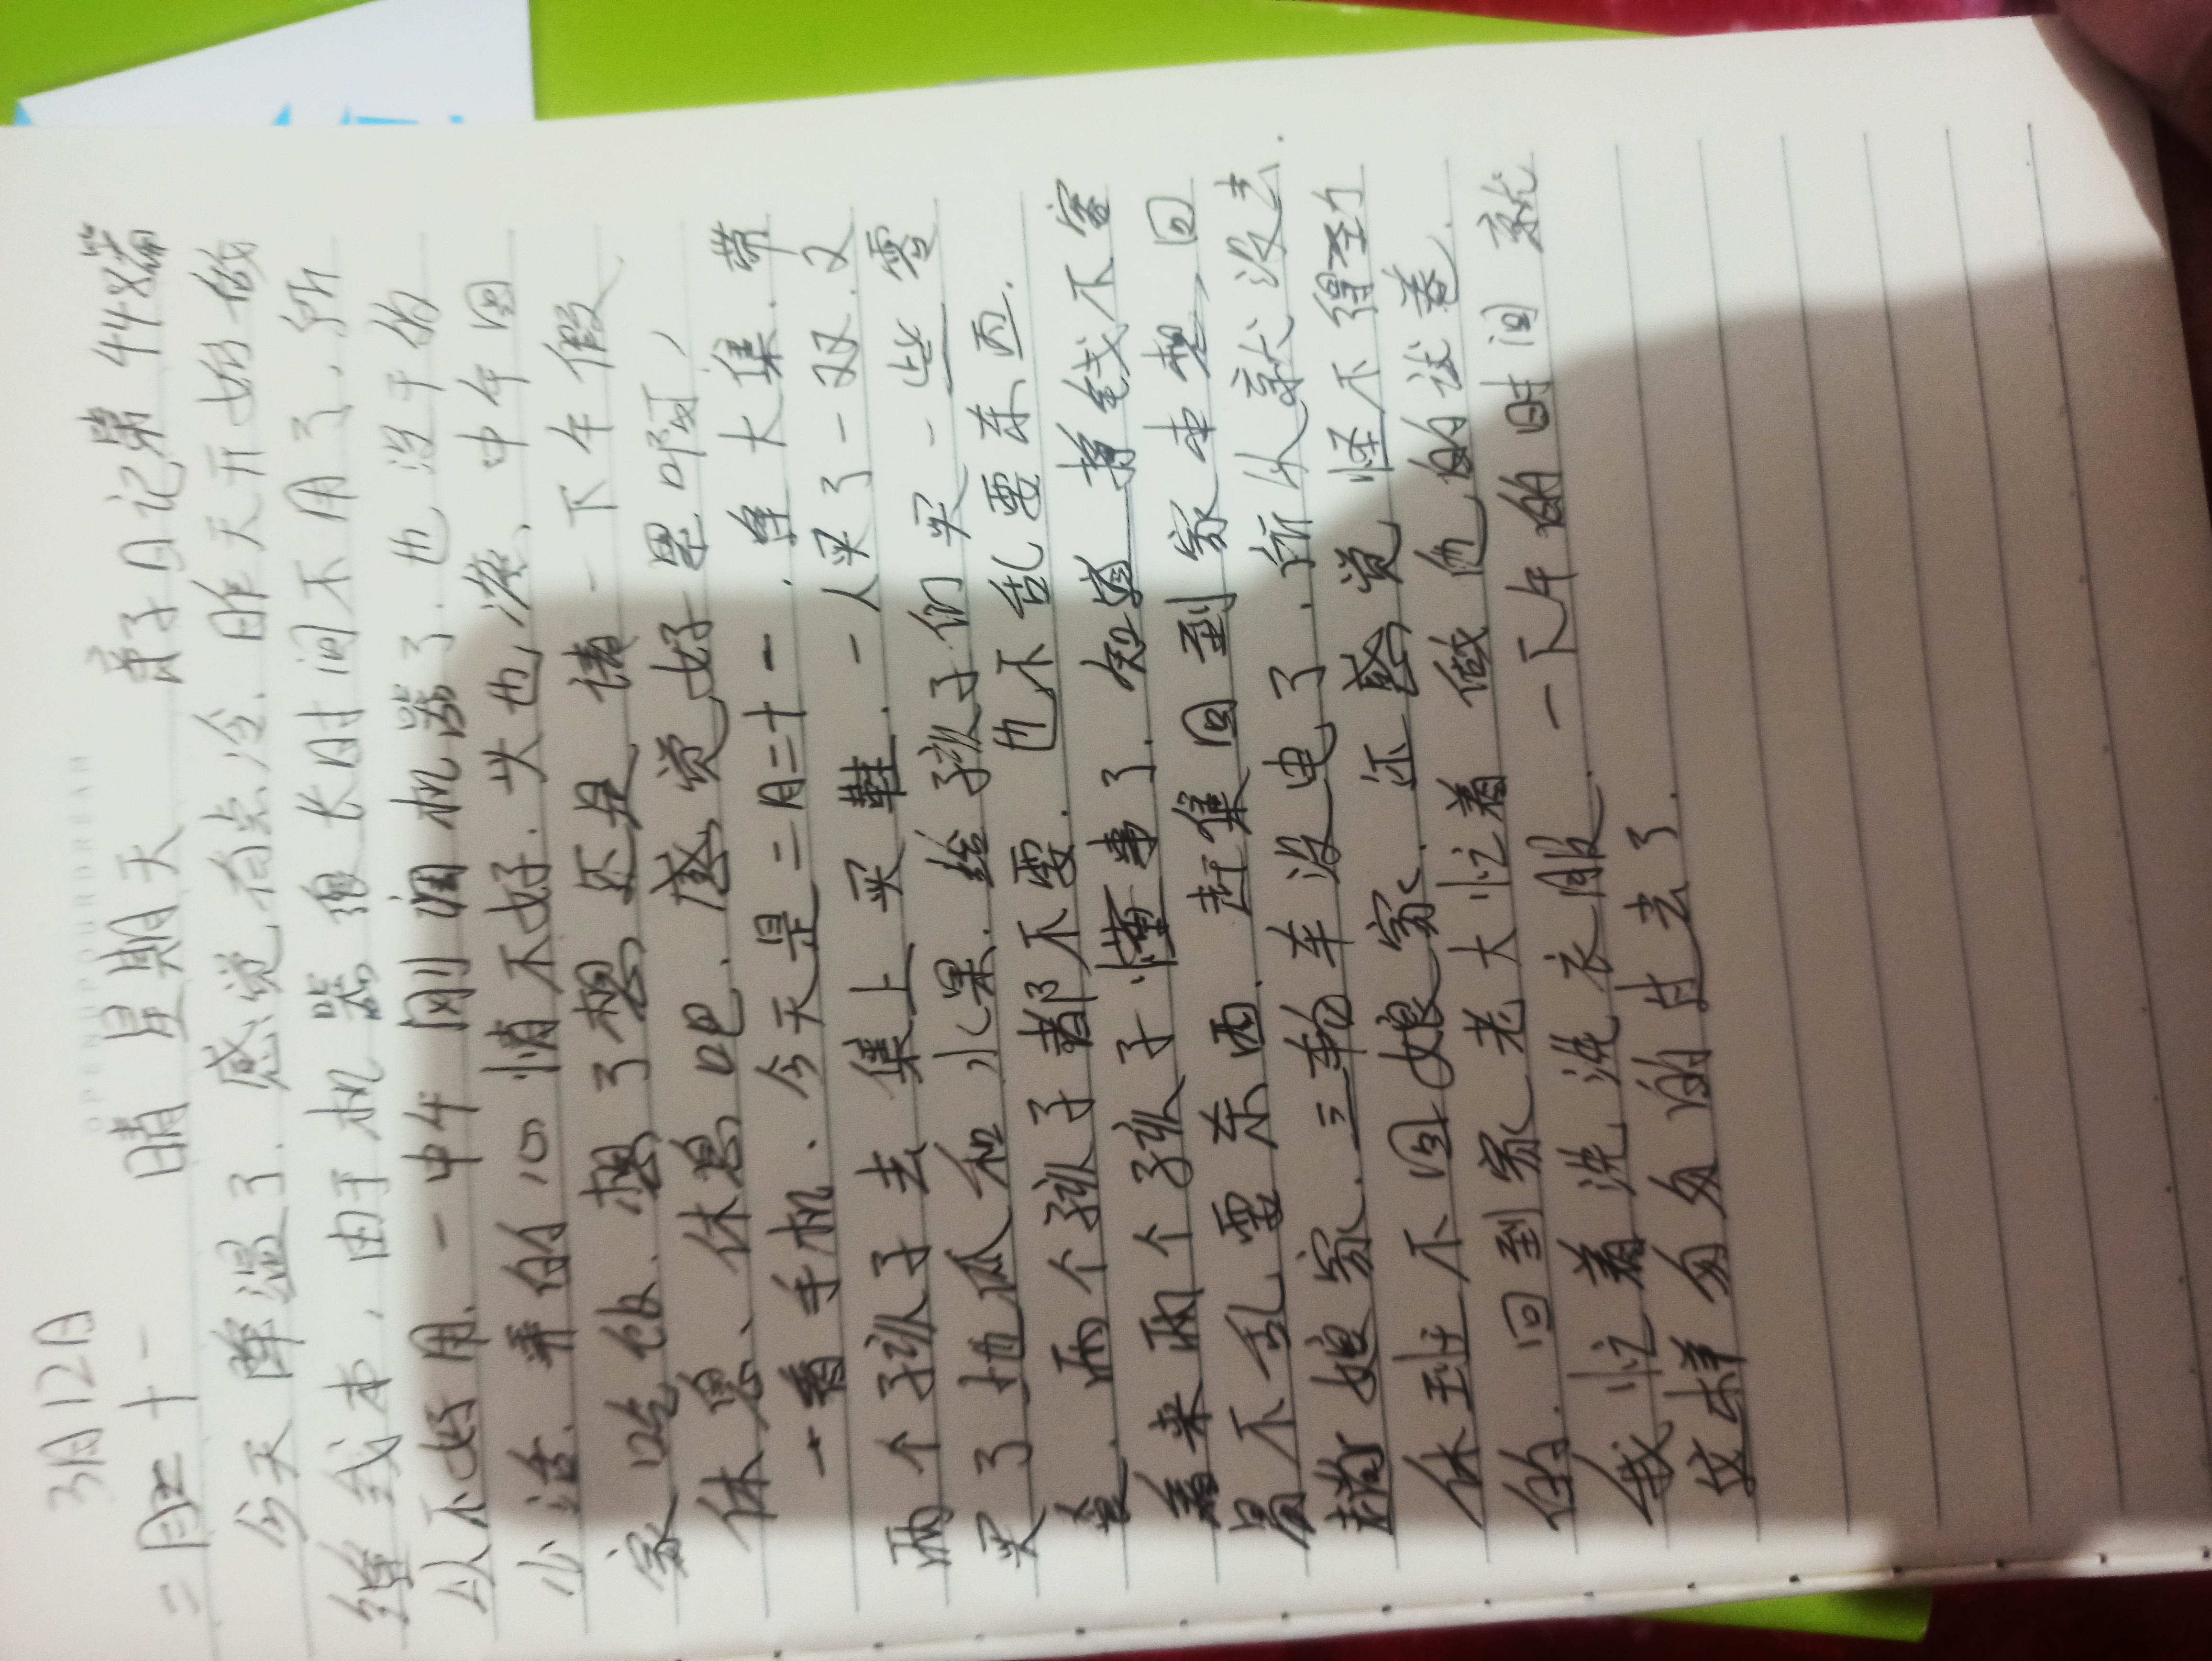 OPENUPOURDREAM
3月12日
二月二十一 晴 星期天 亲子日记第448篇
今天降温了. 感觉有点冷. 昨天开始做
缝线本, 由于机器很长时间不用了, 所
以不好用. 一中午刚调机器了. 也没干的
少活. 弄的心情不好. 头也疼、中午回
家吃饭. 想了想还是请一下午假
休息、休息吧. 感觉好累啊,
一看手机. 今天是二月二十一. 逢大集. 带
两个孩子去集上买鞋. 一人买了一双. 又
买了地瓜和水果. 给孩子们买一些零
食. 两个孩子都不要. 也不乱要东西.
看来两个孩子懂事了. 知道挣钱不容
易不乱要东西. 赶集回到家本想, 回
趟娘家. 三轮车没电了. 所以就没去
休班不回娘家. 还感觉怪不得劲
的. 回到家老大忙着做他的试卷.
我忙着洗洗衣服. 一下午的时间就
这样匆匆的过去了.